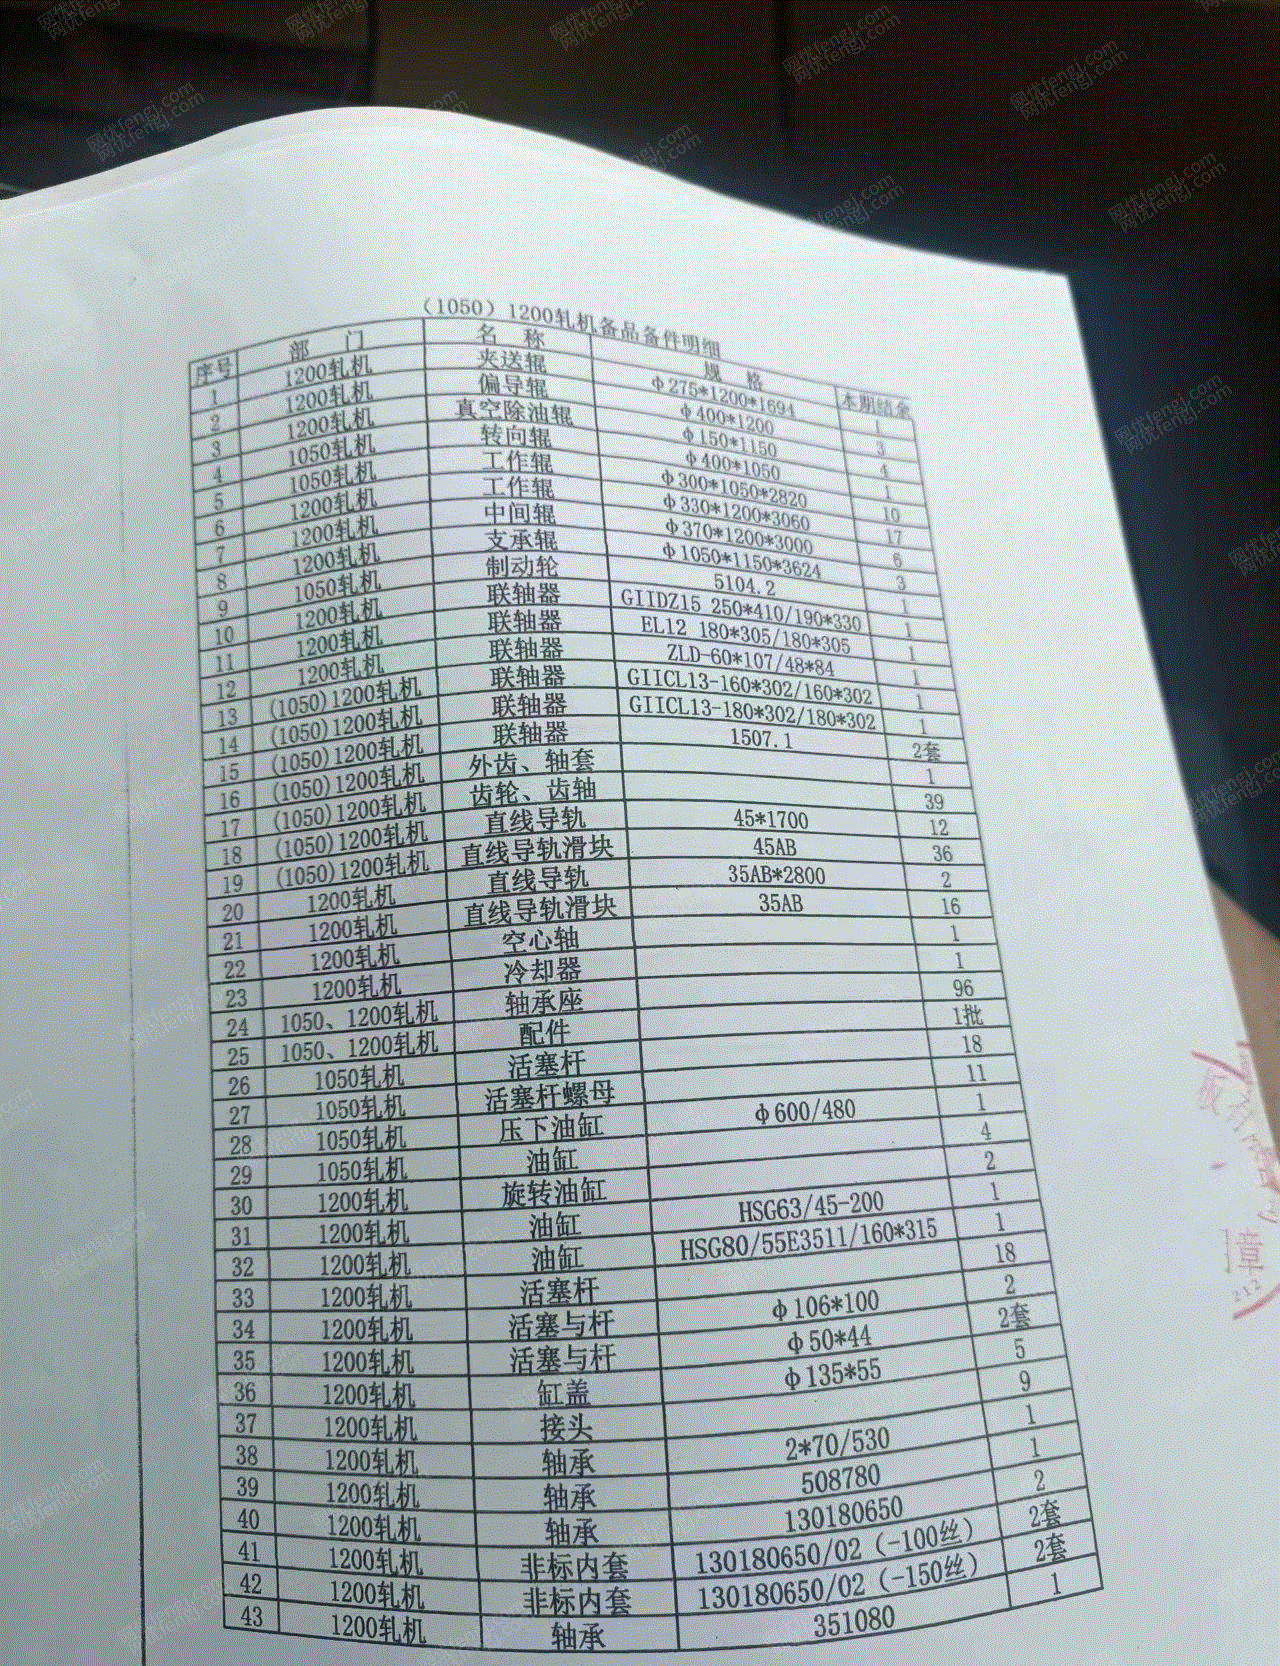 （1050）1200轧机备品备件明细
序号 部 门 名 称 规 格 本期结余
1 1200轧机 夹送辊 φ275*1200*1694 1
2 1200轧机 偏导辊 φ400*1200 3
3 1200轧机 真空除油辊 φ150*1150 4
4 1050轧机 转向辊 φ400*1050 1
5 1050轧机 工作辊 φ300*1050*2820 10
6 1200轧机 工作辊 φ330*1200*3060 17
7 1200轧机 中间辊 φ370*1200*3000 6
8 1200轧机 支承辊 φ1050*1150*3624 3
9 1050轧机 制动轮 5104.2 1
10 1200轧机 联轴器 GIIDZ15 250*410/190*330 1
11 1200轧机 联轴器 EL12 180*305/180*305 1
12 1200轧机 联轴器 ZLD-60*107/48*84 1
13 (1050)1200轧机 联轴器 GIICL13-160*302/160*302 1
14 (1050)1200轧机 联轴器 GIICL13-180*302/180*302 1
15 (1050)1200轧机 联轴器 1507.1 2套
16 (1050)1200轧机 外齿、轴套 1
17 (1050)1200轧机 齿轮、齿轴 39
18 (1050)1200轧机 直线导轨 45*1700 12
19 (1050)1200轧机 直线导轨滑块 45AB 36
20 1200轧机 直线导轨 35AB*2800 2
21 1200轧机 直线导轨滑块 35AB 16
22 1200轧机 空心轴 1
23 1200轧机 冷却器 1
24 1050、1200轧机 轴承座 96
25 1050、1200轧机 配件 1批
26 1050轧机 活塞杆 18
27 1050轧机 活塞杆螺母 11
28 1050轧机 压下油缸 φ600/480 1
29 1050轧机 油缸 4
30 1200轧机 旋转油缸 2
31 1200轧机 油缸 HSG63/45-200 1
32 1200轧机 油缸 HSG80/55E3511/160*315 1
33 1200轧机 活塞杆 18
34 1200轧机 活塞与杆 φ106*100 2
35 1200轧机 活塞与杆 φ50*44 2套
36 1200轧机 缸盖 φ135*55 5
37 1200轧机 接头 9
38 1200轧机 轴承 2*70/530 1
39 1200轧机 轴承 508780 1
40 1200轧机 轴承 130180650 2
41 1200轧机 非标内套 130180650/02（-100丝） 2套
42 1200轧机 非标内套 130180650/02（-150丝） 2套
43 1200轧机 轴承 351080 1
章
212
网优fengj.com